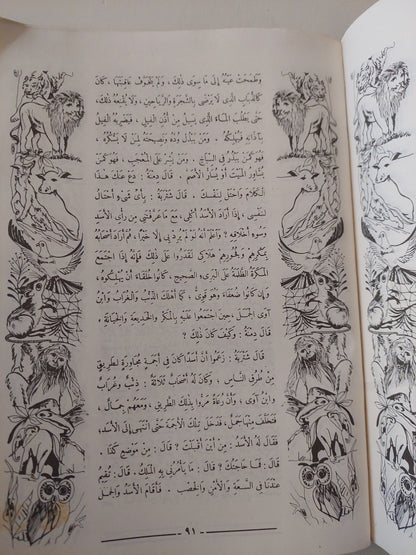 وَطَمَحَتْ عَيْنُهُ إِلَى مَا سِوَى ذَلِكَ، وَلَمْ يَتَخَوَّفْ عَاقِبَتَهَا، كَانَ
كَالذُّبَابِ الَّذِى لَا يَرْضَى بِالشَّجَرِ وَالرَّيَاحِينِ، وَلَا يُقْنِعُهُ ذَلِكَ،
حَتَّى يَطْلُبَ الْمَاءَ الَّذِى يَسِيلُ مِنْ أُذُنِ الْفِيلِ، فَيَضْرِبُهُ الْفِيلُ
بِآذَانِهِ فَيُهْلِكُهُ. وَمَنْ يَبْذُلْ وُدَّهُ وَنَصِيحَتَهُ لِمَنْ لَا يَشْكُرُهُ،
فَهُوَ كَمَنْ يَبْذُرُ فِى السِّبَاخِ. وَمَنْ يُشِرْ عَلَى الْمُعْجَبِ، فَهُوَ كَمَنْ
يُشَاوِرُ الْمَيِّتَ أَوْ يُسَارُّ الْأَصَمَّ. قَالَ دِمْنَةُ: دَعْ عَنْكَ هَذَا
الْكَلَامَ وَاحْتَلْ لِنَفْسِكَ. قَالَ شَتْرَبَةُ: بِأَىِّ شَىْءٍ أَحْتَالُ
لِنَفْسِى، إِذَا أَرَادَ الْأَسَدُ أَكْلِى، مَعَ مَا عَرَّفْتَنِى مِنْ رَأْىِ الْأَسَدِ
وَسُوءِ أَخْلَاقِهِ؟ وَاعْلَمْ أَنَّهُ لَوْ لَمْ يُرِدْ بِى إِلَّا خَيْرًا، ثُمَّ أَرَادَ أَصْحَابُهُ
بِمَكْرِهِمْ وَفُجُورِهِمْ هَلَاكِى لَقَدَرُوا عَلَى ذَلِكَ فَإِنَّهُ إِذَا اجْتَمَعَ
الْمَكَرَةُ الظَّلَمَةُ عَلَى الْبَرِىءِ الصَّحِيحِ، كَانُوا خُلَقَاءَ أَنْ يُهْلِكُوهُ،
وَإِنْ كَانُوا ضُعَفَاءَ وَهُوَ قَوِىٌّ، كَمَا أَهْلَكَ الذِّئْبُ وَالْغُرَابُ وَابْنُ
آوَى الْجَمَلَ، حِينَ اجْتَمَعُوا عَلَيْهِ بِالْمَكْرِ وَالْخَدِيعَةِ وَالْخِيَانَةِ.
قَالَ دِمْنَةُ: وَكَيْفَ كَانَ ذَلِكَ؟
قَالَ شَتْرَبَةُ: زَعَمُوا أَنَّ أَسَدًا كَانَ فِى أَجَمَةٍ مُجَاوِرَةٍ لِطَرِيقٍ
مِنْ طُرُقِ النَّاسِ، وَكَانَ لَهُ أَصْحَابٌ ثَلَاثَةٌ: ذِئْبٌ وَغُرَابٌ
وَابْنُ آوَى، وَأَنَّ رُعَاةً مَرُّوا بِذَلِكَ الطَّرِيقِ، وَمَعَهُمْ جِمَالٌ،
فَتَخَلَّفَ مِنْهَا جَمَلٌ، فَدَخَلَ تِلْكَ الْأَجَمَةَ حَتَّى انْتَهَى إِلَى الْأَسَدِ،
فَقَالَ لَهُ الْأَسَدُ: مِنْ أَيْنَ أَقْبَلْتَ؟ قَالَ: مِنْ مَوْضِعِ كَذَا.
قَالَ: فَمَا حَاجَتُكَ؟ قَالَ: مَا يَأْمُرُنِى بِهِ الْمَلِكُ. قَالَ: تُقِيمُ
عِنْدَنَا فِى السَّعَةِ وَالْأَمْنِ وَالْخِصْبِ. فَأَقَامَ الْأَسَدُ وَالْجَمَلُ
٩١